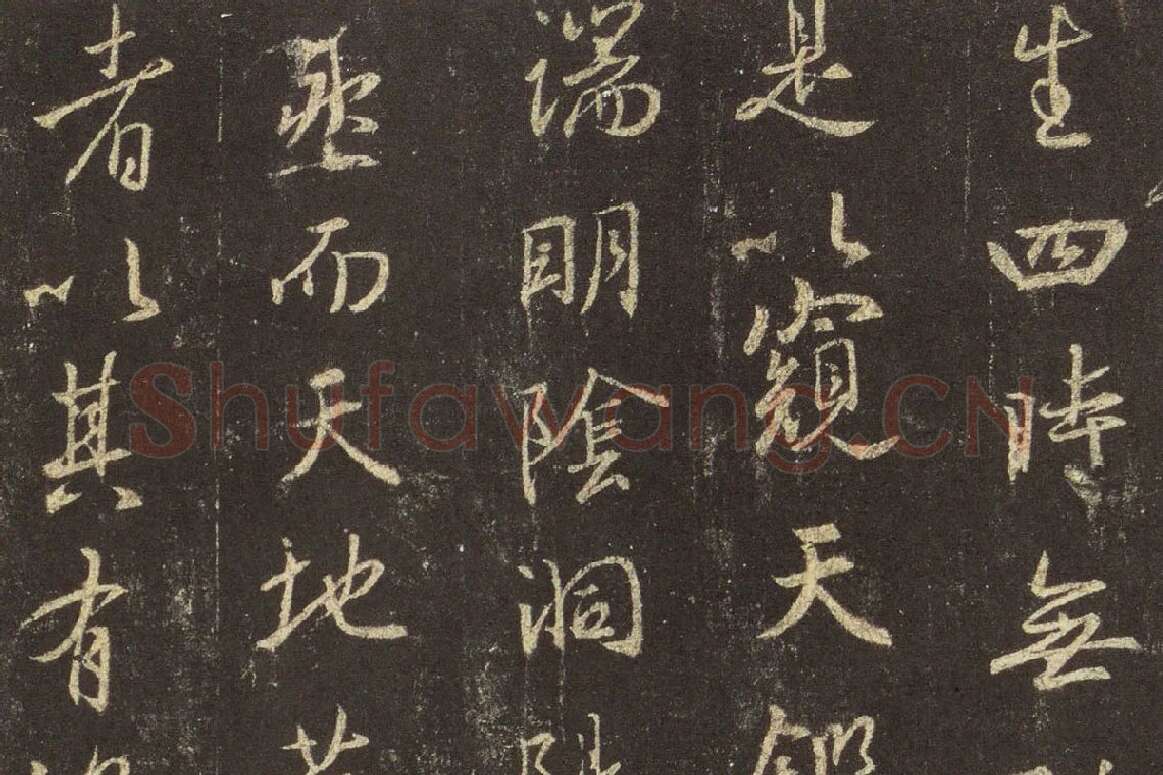 生四時無
是以窺天鑑
端明陰洞陽
亟而天地苞
者以其有
Shufawang.CN